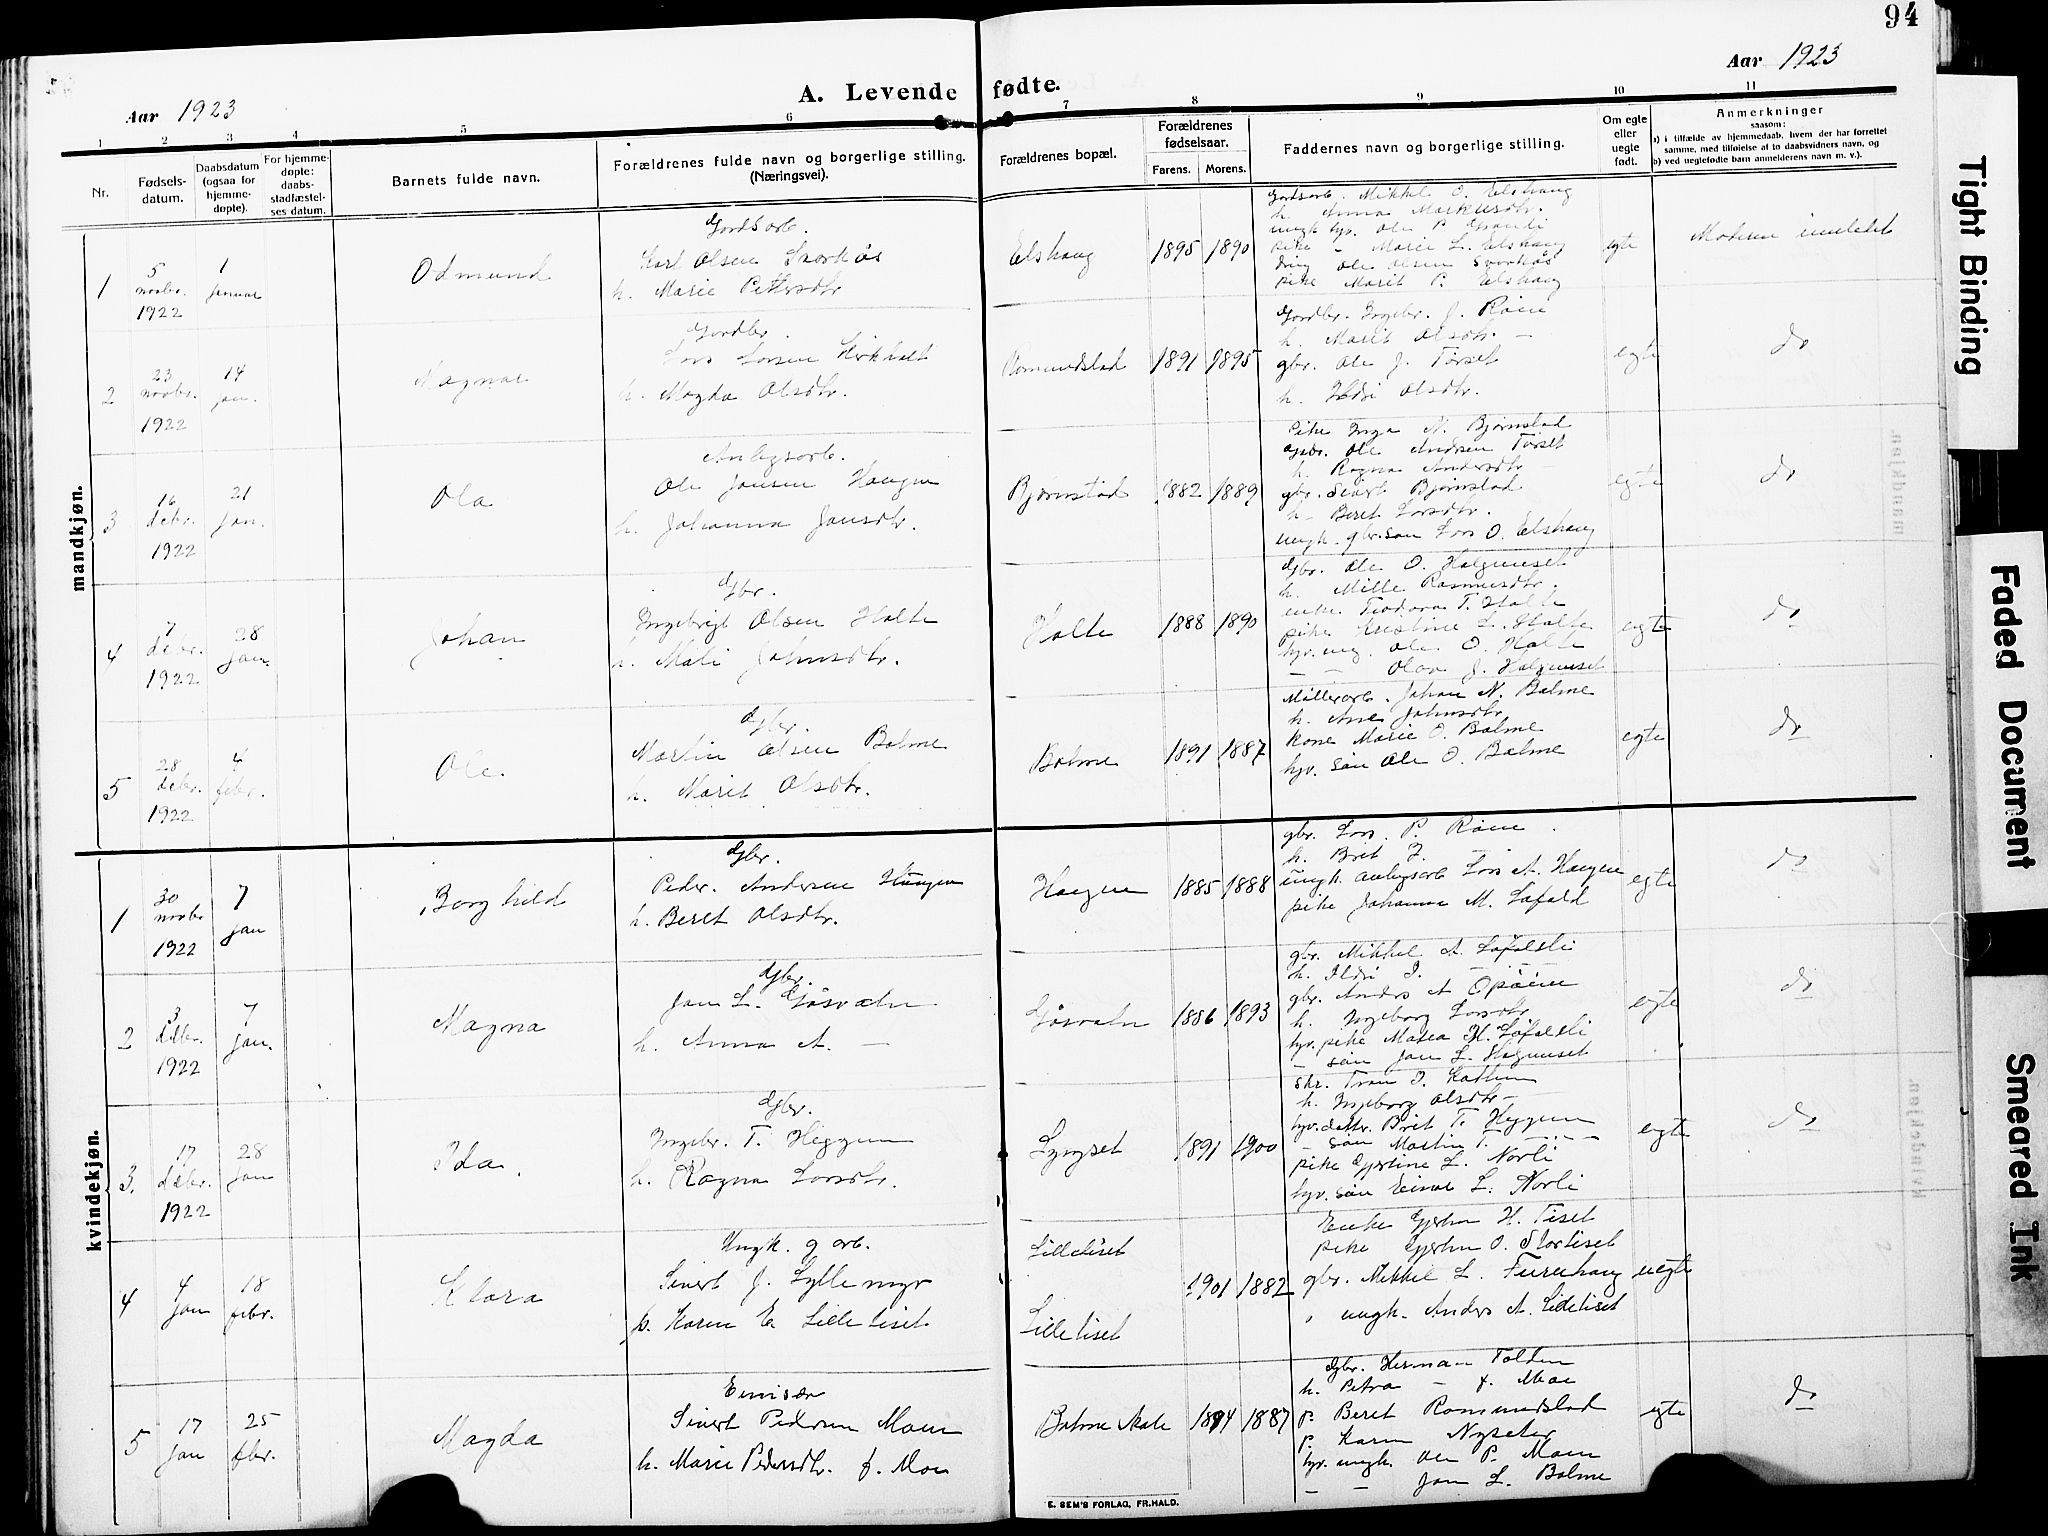 94
Aar 1923
A. Levende fødte.
Aar 1923
1 2 3 4 5 6 7 8 9 10 11
Nr.
Fødsels-
datum.
Daabsdatum
(ogsaa for
hjemme-
døpte).
For hjemme-
døpte:
daabs-
stadfæstel-
ses datum.
Barnets fulde navn.
Forældrenes fulde navn og borgerlige stilling.
(Næringsvei).
Forældrenes bopæl.
Forældrenes
fødselsaar.
Farens. Morens.
Faddernes navn og borgerlige stilling.
Om egte
eller
uegte
født.
Anmerkninger
saasom:
a) i tilfælde av hjemmedaab, hvem der har forrettet
samme, med tilføielse af to daabsvidners navn, og
b) ved uegtefødte barn anmelderens navn m. v.).
mandkjøn.
1
5
novbr.
1922
1
januar
Odmund
Gordsarb.
Karl Olsen Svorkås
h. Marie Pettersdtr.
Elshaug
1895 1890
Gordsarb. Mikkel O. Elshaug
h. Anna Markusdtr.
ungk. hyr. Ole P. Grønli
pike - Marie L. Elshaug
dreng Ole Olsen Svorkås
pike Marit P. Elshaug
egte
Moderen innledet
2
23
novbr.
1922
14
jan.
Magnar
Gordbr.
Lars Larsen Kirkholt
h. Magda Olsdtr.
Romundstad
1891 1895
Gordbr. Ingebr. J. Røen
h. Marit Olsdtr. -
gbr. Ole J. Tørset
h. Ildri Olsdtr.
egte
do
3
16
debr.
1922
21
jan.
Ola
Anlegsarb.
Ole Jonsen Haugen
h. Johanna Jonsdtr.
Bjørnstad
1882 1889
Pike Inga N. Bjørnstad
Gbr. Ole Andersen Tørset
h. Ragna Andersdtr -
gbr. Sivert Bjørnstad
h - Beret Larsdtr.
ungk. gbr.søn Lars O. Elshaug
egte
do
4
7
debr.
1922
28
jan.
Johan
Gbr.
Ingebrigt Olsen Holte
h. Mali Johnsdtr.
Holte
1888 1890
Gbr. Ole O. Halgunset
h. Mille Rasmusdtr.
enke. Teodora T. Holte
pike Kristine L. Holte
hyr. ung. Ole O. Holte
- - Olav J. Halgunset
egte
do
5
28
debr.
1922
4
febr.
Ole.
Gbr.
Martin Olsen Bolme
h. Marit Olsdtr.
Bolme
1891 1887
Møllerarb. Johan N. Bolme
h. Ane Johnsdtr
kone Marie O. Bolme
hyr. søn Ole O. Bolme
egte
do
kvindekjøn.
1
30
novbr
1922
7
jan
Borghild
Gbr.
Peder Andersen Haugen
h. Beret Olsdtr.
Haugen
1885 1888
gbr. Lars P. Røen
h. Brit J. -
ungk. anlegsarb Lars A. Haugen
pike Johanna M. Løfald
egte
do
2
3
debr.
1922
7
jan.
Magna
Gbr.
Jon L. Gåsvatn
h. Anna A. -
Gåsvatn
1886 1893
gbr. Mikkel A. Løfaldli
h. Ildri I. -
gbr. Anders A Opøien
h. Ingeborg Larsdtr
hyr. pike Matea H. Løfaldli
- søn Jon L. Halgunset
egte
do
3.
17
debr.
1922
28
jan
Ida.
Gbr.
Ingebr. T. Heggem
h. Ragna Larsdtr.
Lyngset
1891 1900
skr. Tron O. Kattem
h. Ingeborg Olsdtr -
hyr.datter. Brit T. Heggem
- søn Martin T. -
pike Gjertine L. Norli
hyr. søn Einar L. Norli
egte
do
4
4
jan
18
febr.
Klara
Ungk. g arb.
Sivert J. Lyllemyr
p. Karen E. Lilletiset
Lilletiset
Lilletiset
1901 1882
Enke Gjertru H. Tiset
pike Gjertru O. Stortiset
gbr. Mikkel L. Furuhaug
" ungk. Anders A. Lilletiset
uegte
5
17
jan
25
fbr.
Magda
Emisær
Sivert Pedersen Moen
h. Marie Pedersdtr. f. Moe
Bolme skole
1894 1887
Gbr. Herman Folden
h. Petra - f. Moe
p. Beret Romundstad
p. Karen Nyseter
hyr. ungk. Ole P. Moen
- - Jon L. Bolme
egte
do
E. SEM'S FORLAG, FR.HALD.
Tight Binding
Faded Document
Smeared Ink